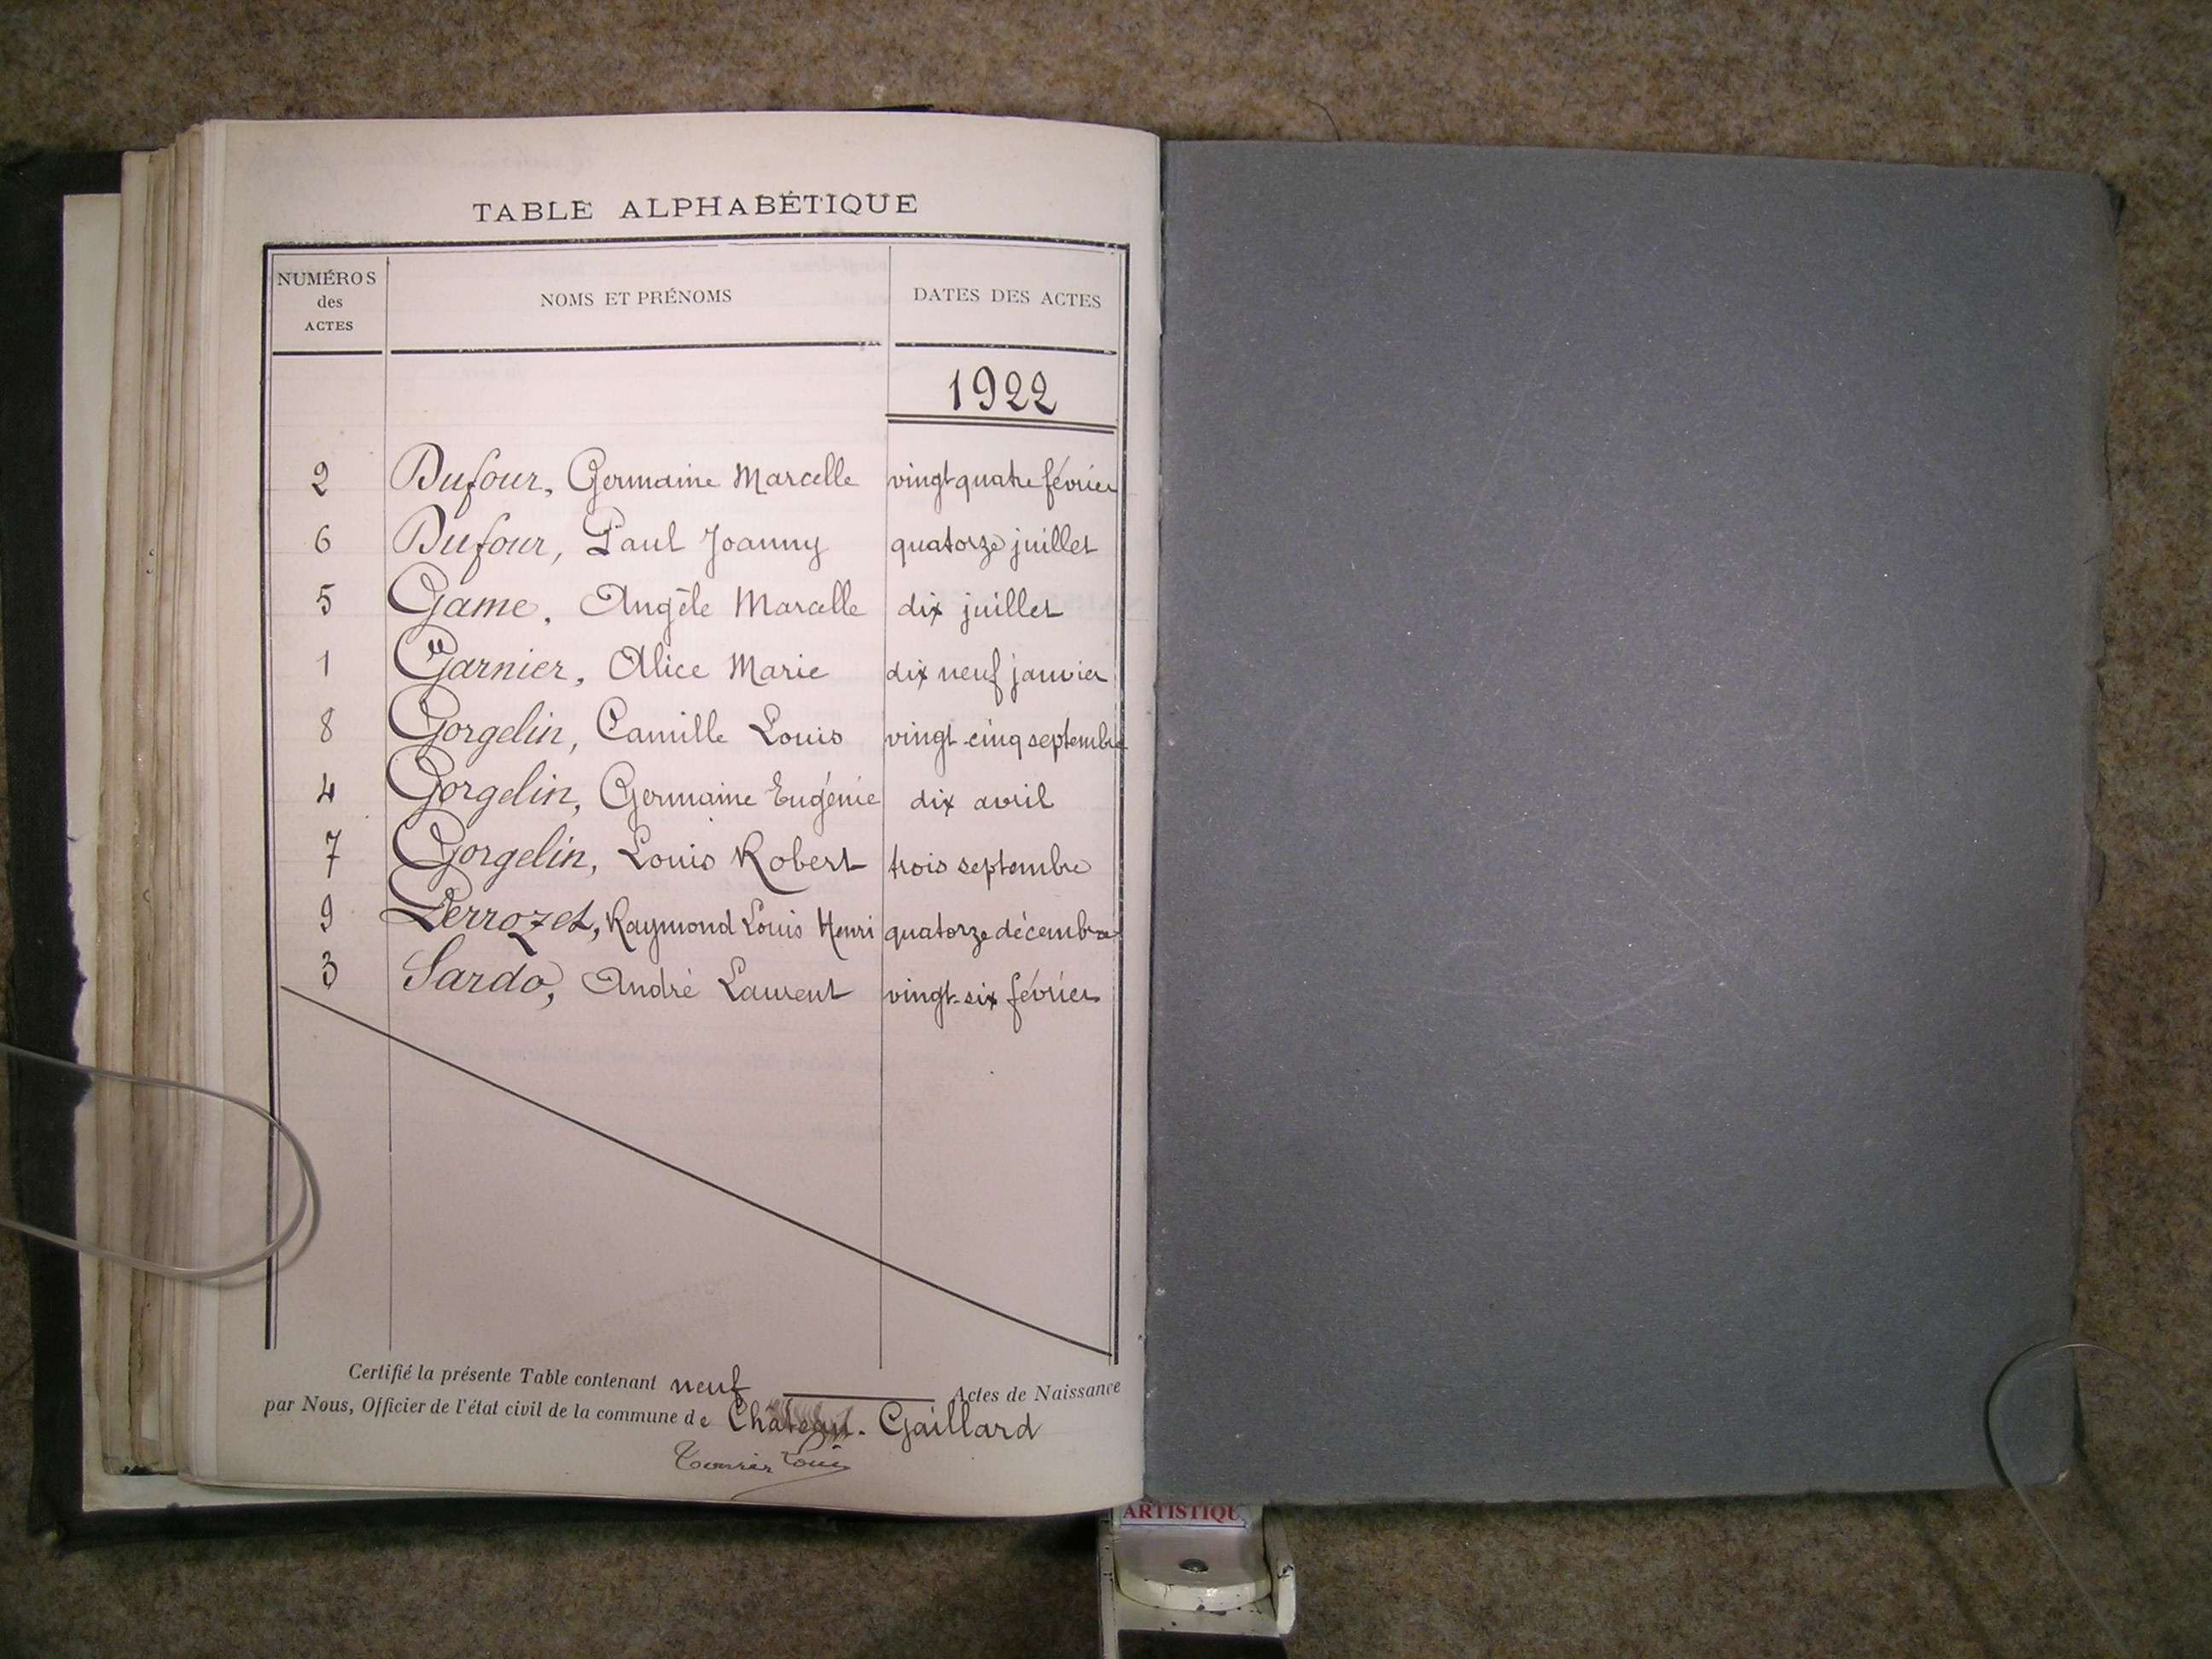 TABLE ALPHABÉTIQUE
NUMÉROS des ACTES NOMS ET PRÉNOMS DATES DES ACTES
1922
2 Dufour, Germaine Marcelle vingt quatre février
6 Dufour, Paul Joanny quatorze juillet
5 Game, Angèle Marcelle dix juillet
1 Garnier, Alice Marie dix neuf janvier
8 Gorgelin, Camille Louis vingt-cinq septembre
4 Gorgelin, Germaine Eugénie dix avril
7 Gorgelin, Louis Robert trois septembre
9 Perrozet, Raymond Louis Henri quatorze décembre
3 Sardo, André Laurent vingt-six février
Certifié la présente Table contenant neuf Actes de Naissance
par Nous, Officier de l'état civil de la commune de Château-Gaillard
ARTISTIQU